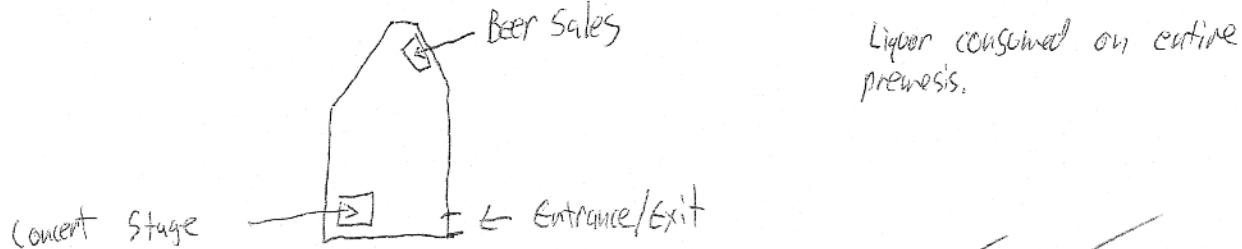 Beer Sales
Liquor consumed on entire
premesis.
Concert Stage
Entrance/Exit